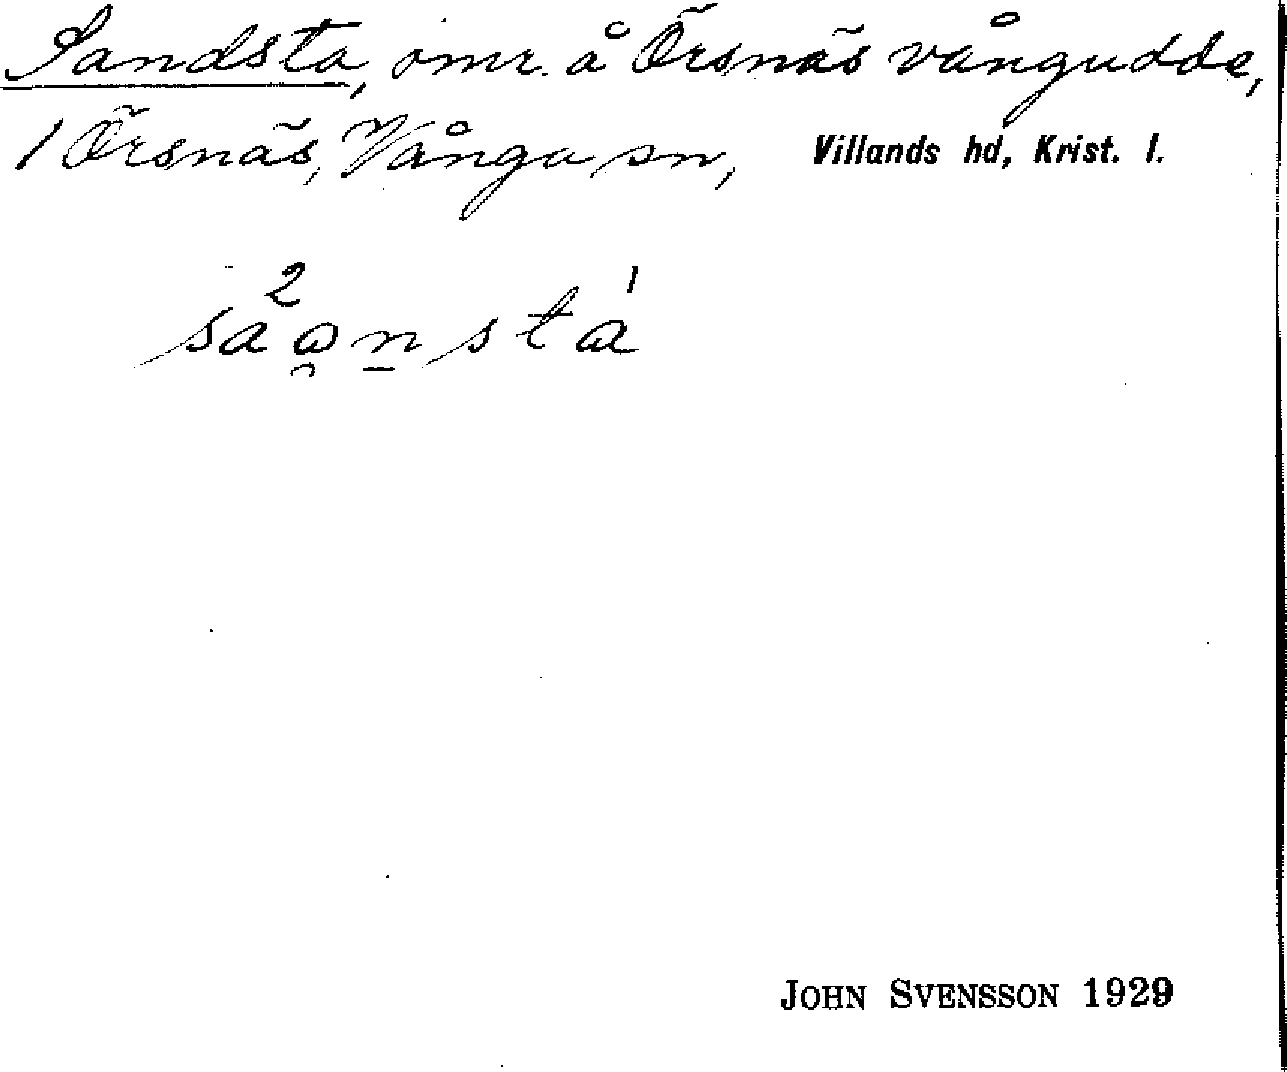 Sandsta, omr. å Örsnäs vångudde,
1 Örsnäs, Vånga sn, Villands hd, Krist. l.
JOHN SVENSSON 1929